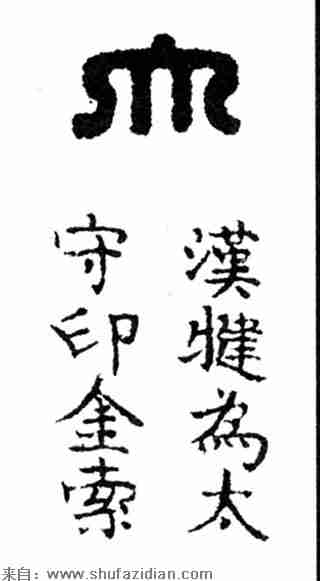 漢犍為太
守印金索
来自：www.shufazidian.com